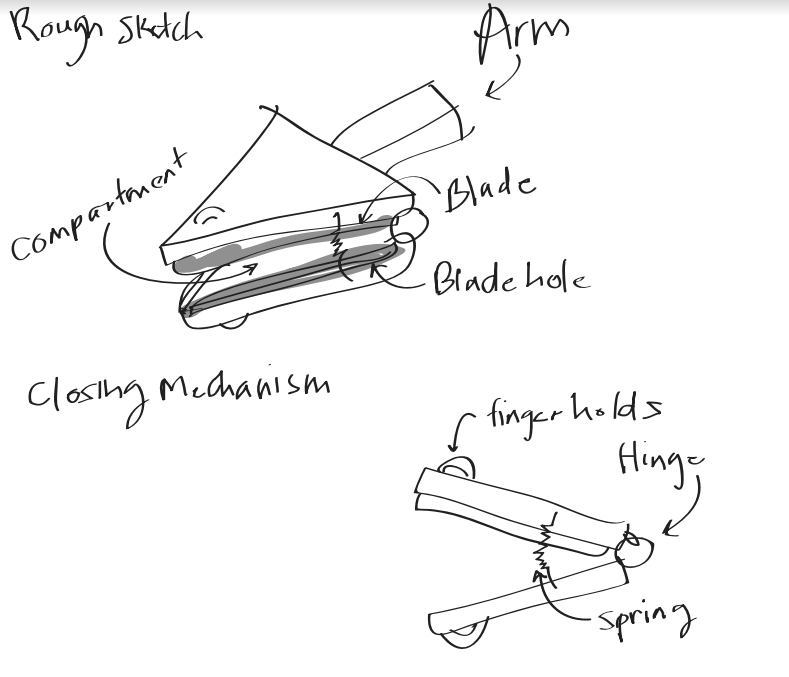 Rough sketch
Arm
compartment
Blade
Blade hole
Closing Mechanism
finger holds
Hinge
spring